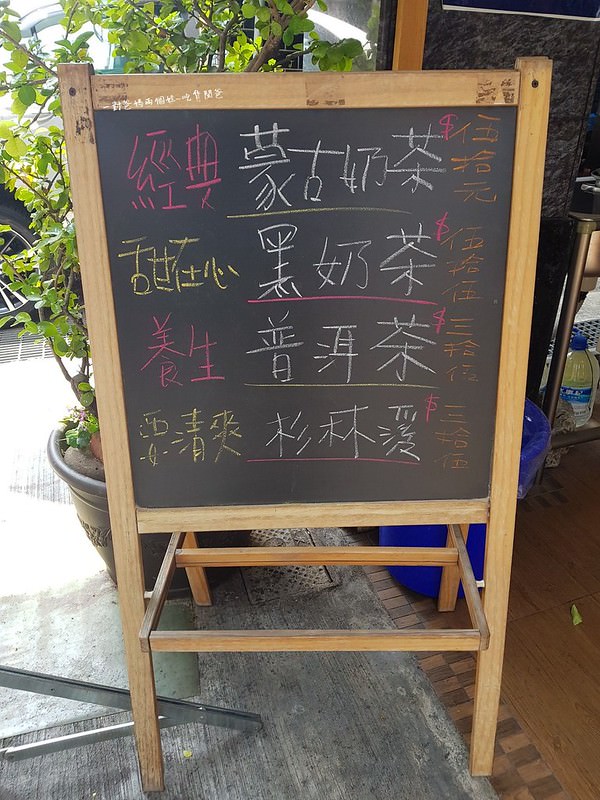 一對爸媽兩個娃~吃貨閒爸
經典 蒙古奶茶 $伍拾元
甜在心 黑奶茶 $伍拾伍
養生 普洱茶 $三拾伍
要清爽 杉林溪 $三拾伍